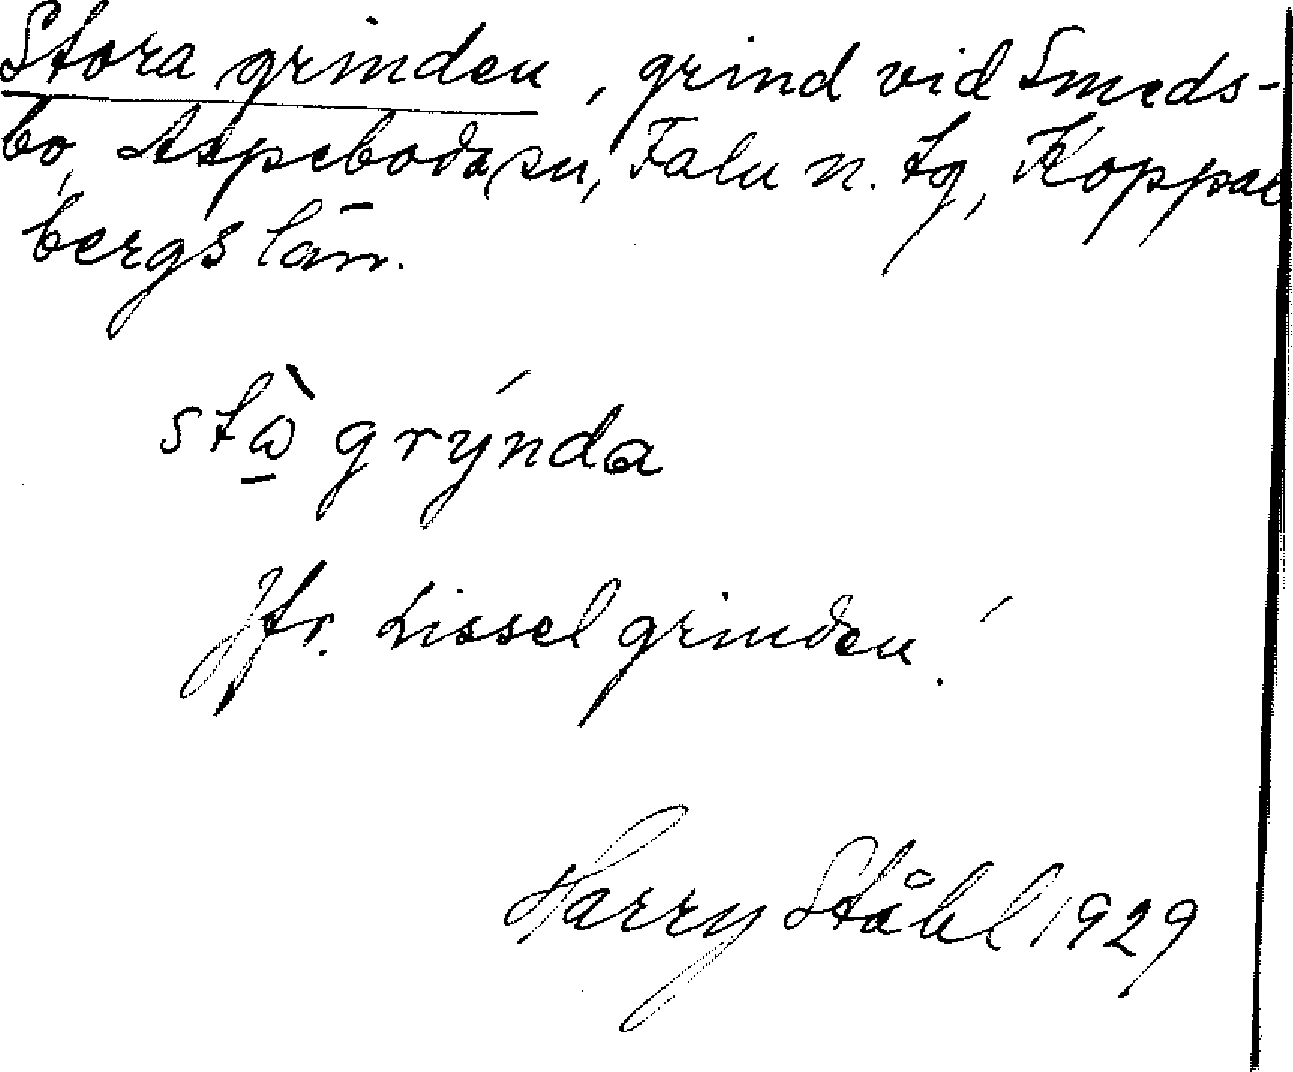 Stora grinden, grind vid Smeds-
bo, Aspeboda sn, Falu n. tg, Koppar
bergs län.
stɷ̀ grýnda
Jfr. Lisselgrinden!
Harry Ståhl 1929